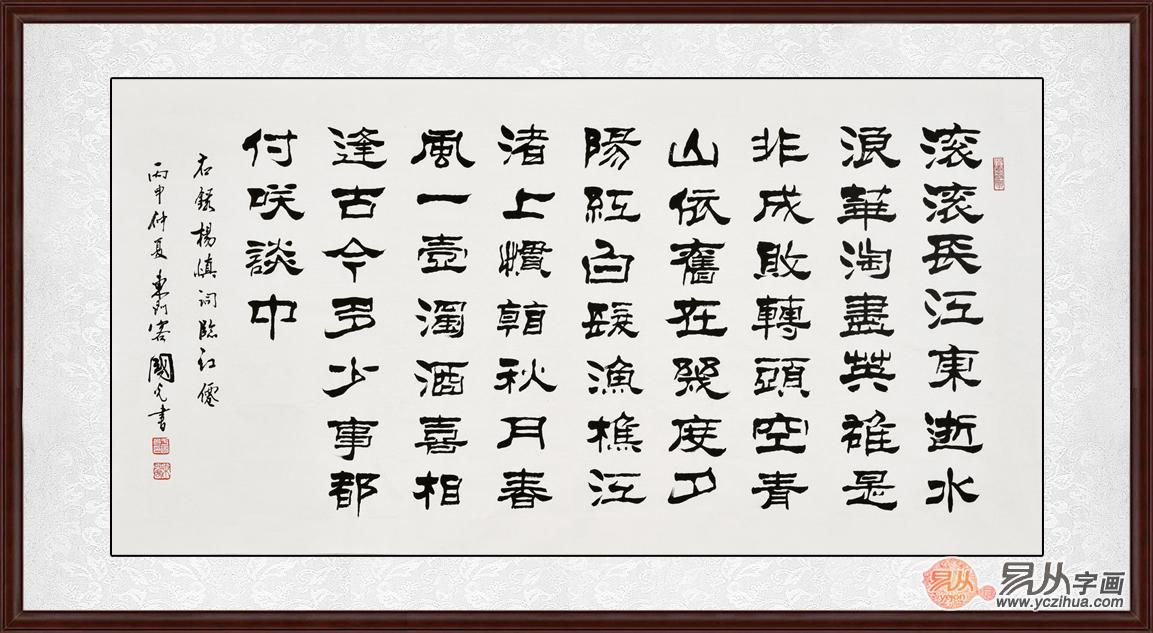 滚滚長江東逝水
浪華淘盡英雄是
非成敗轉頭空青
山依舊在幾度夕
陽紅白髮漁樵江
渚上慣看秋月春
風一壺濁酒喜相
逢古今多少事都
付咲談中
右錄楊慎詞臨江僊
丙申仲夏東門客國光書
易从
yexon
易从字画
www.yczihua.com